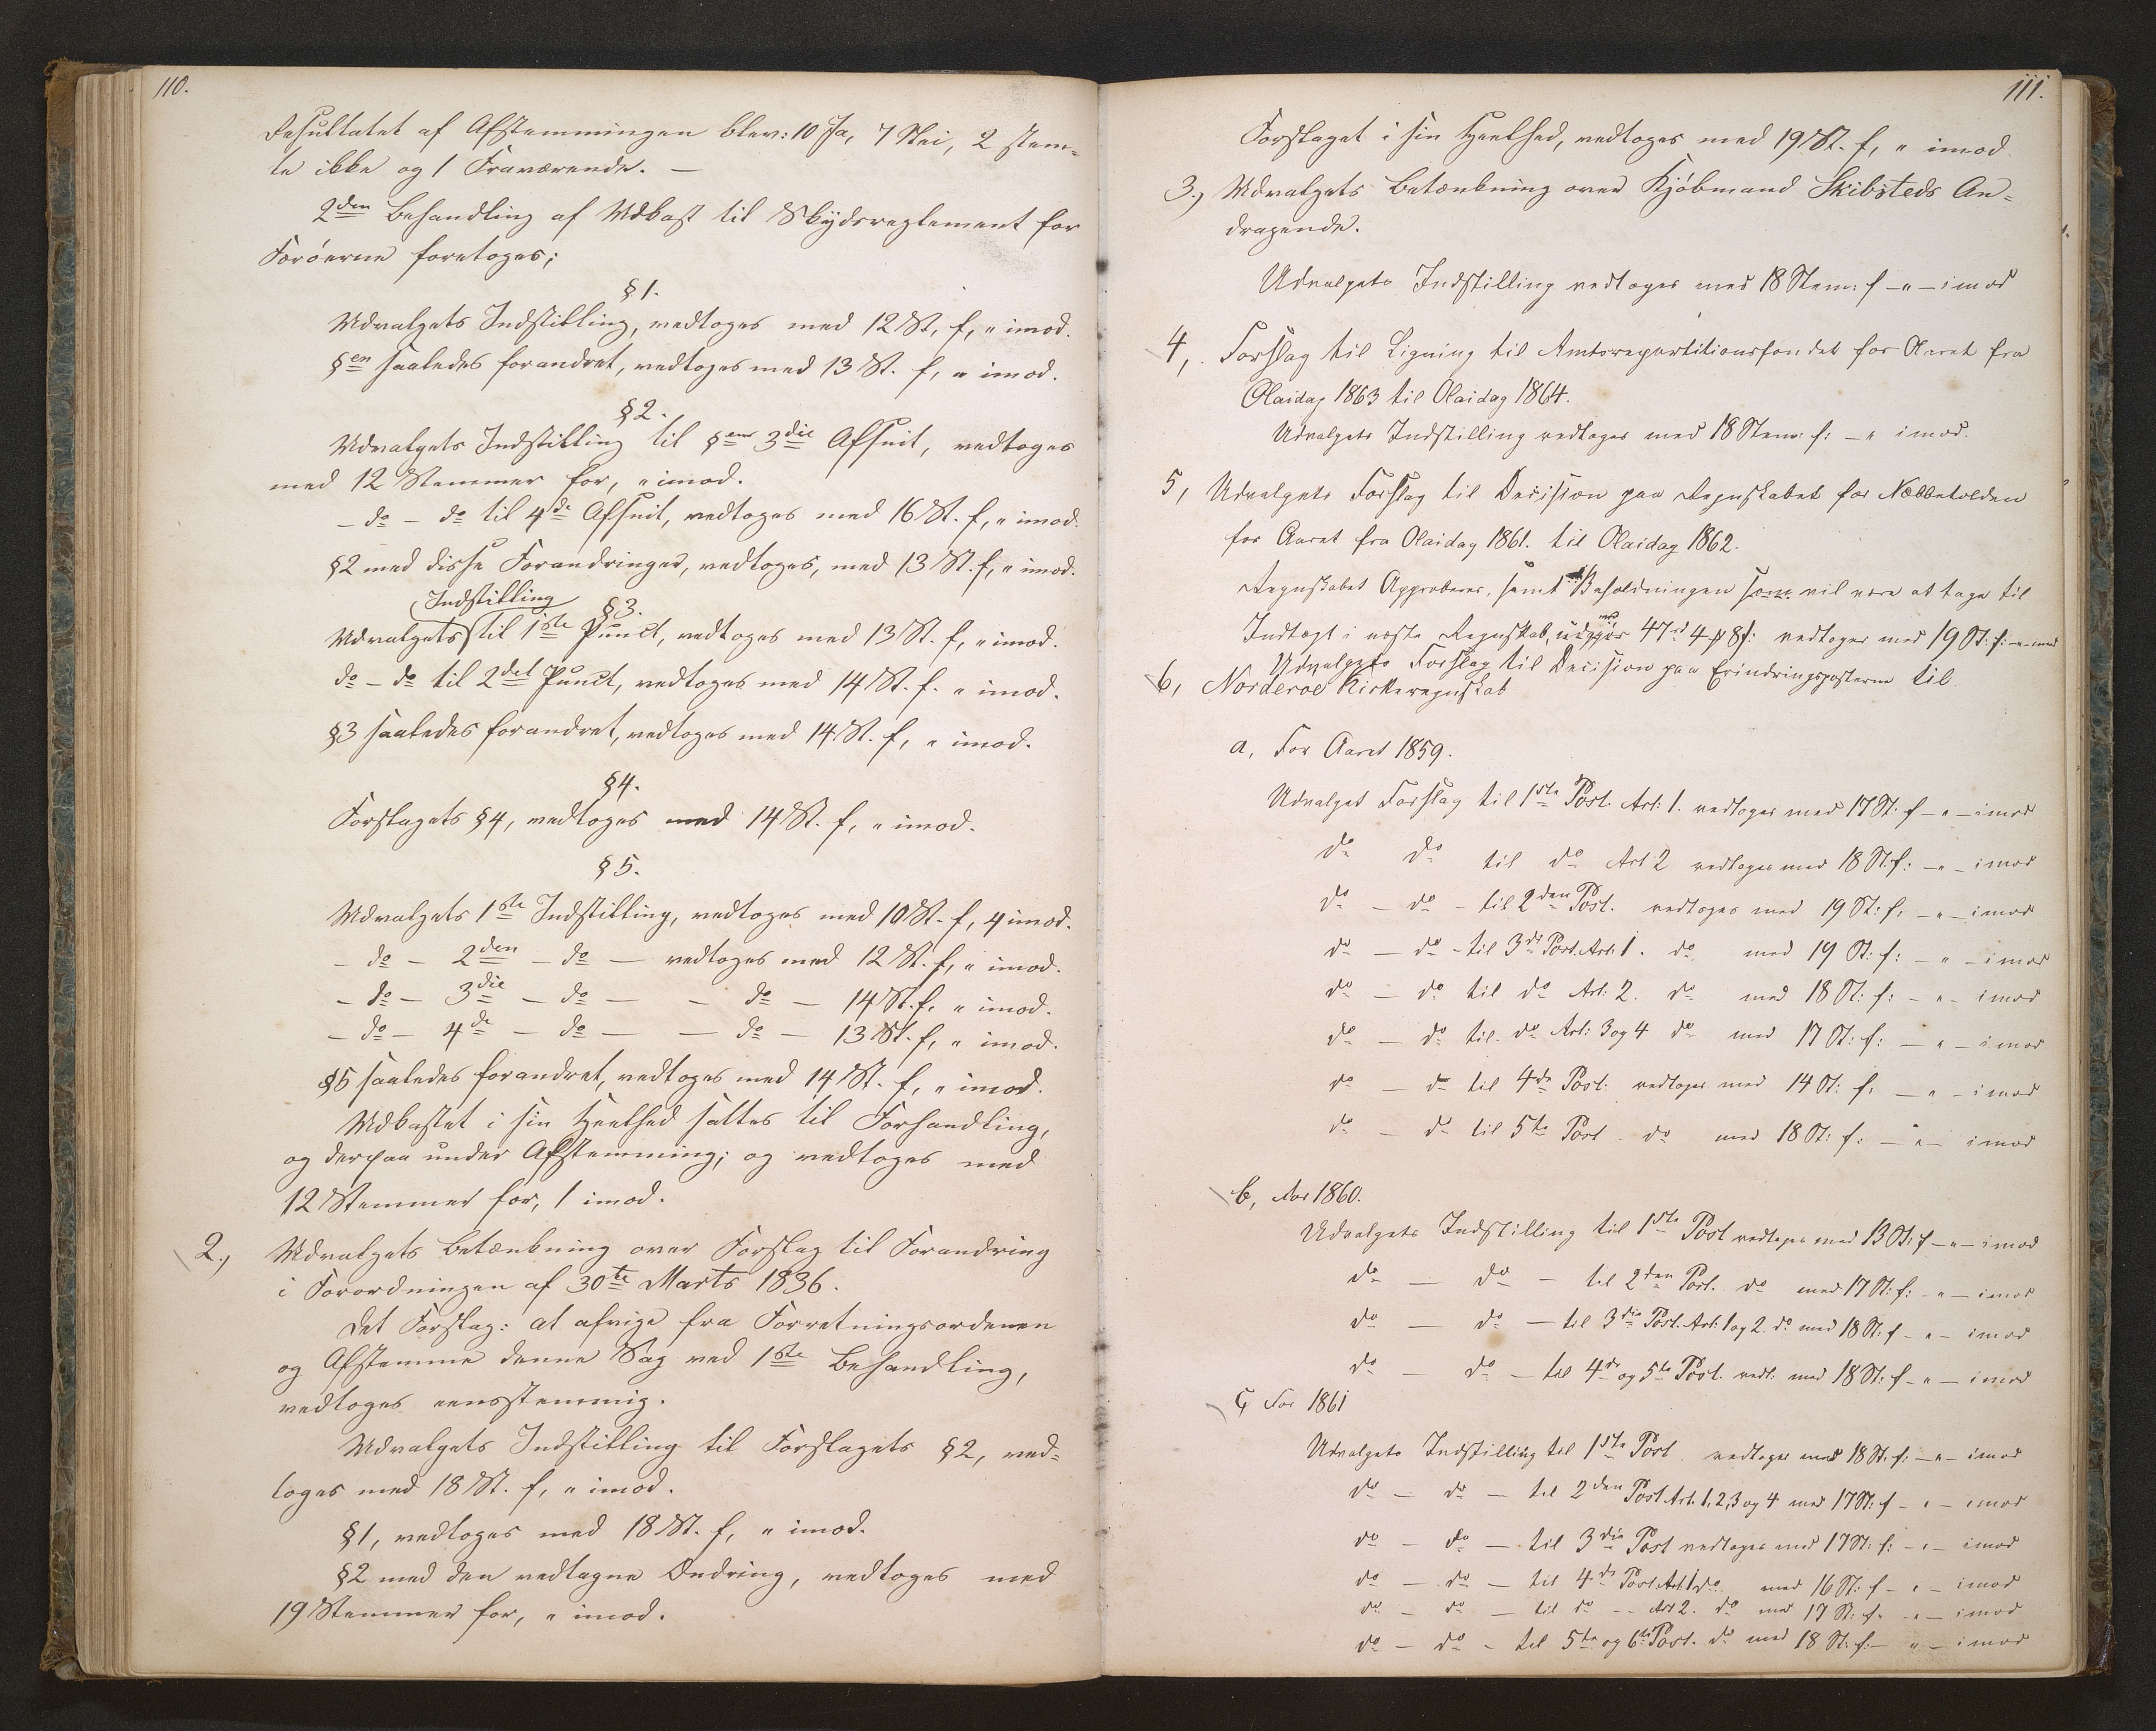 110.
Resultatet af Afstemningen blev: 10 Ja, 7 Nei, 2 stem=
te ikke og 1 Fraværende. —
2den Behandling af Udkast til Skydsreglement for
Færöerne foretoges;
§ 1.
Udvalgets Indstilling, vedtoges med 12 St. f, " imod.
§en saaledes forandret, vedtoges med 13 St. f, " imod.
§ 2.
Udvalgets Indstilling til §ens 3die Afsnit, vedtoges
med 12 Stemmer for, " imod.
– do – do til 4de Afsnit, vedtoges med 16 St. f, " imod.
§2 med disse Forandringer, vedtoges, med 13 St. f, " imod.
Indstilling
§ 3.
Udvalgets til 1ste Punct, vedtoges med 13 St. f, " imod.
do – do til 2det Punct, vedtoges med 14 St. f. " imod.
§3 saaledes forandret, vedtoges med 14 St. f, " imod.
§4.
Forslagets §4, vedtoges med 14 St. f, " imod.
§ 5.
Udvalgets 1ste Indstilling, vedtoges med 10 St. f, 4 imod.
– do – 2den – do — vedtoges med 12 St. f, " imod.
– do – 3die – do — – do – 14 St. f. " imod.
– do – 4de – do — — do – 13 St. f, " imod.
§5 saaledes forandret, vedtoges med 14 St. f, " imod.
Udkastet i sin Heelhed sattes til Forhandling,
og derpaa under Afstemning; og vedtoges med
12 Stemmer for, 1 imod.
2., Udvalgets Betænkning over Forslag til Forandring
i Forordningen af 30te Marts 1836.
Det Forslag: at afvige fra Forretningsordenen
og Afstemme denne Sag ved 1ste Behandling,
vedtoges eensstemmig.
Udvalgets Indstilling til Forslagets §2, ved=
toges med 18 St. f, " imod.
§1, vedtoges med 18 St. f, " imod.
§2 med den vedtagne Ændring, vedtoges med
19 Stemmer for, " imod.
111.
Forslaget i sin Heelhed, vedtoges med 19 St. f, " imod.
3., Udvalgets Betænkning over Kjöbmand Skibsteds An=
dragende.
Udvalgets Indstilling vedtoges med 18 Stem: f – " – imod
4, Forslag til Ligning til Amtsrepartitionsfondet for Aaret fra
Olaidag 1863 til Olaidag 1864.
Udvalgets Indstilling vedtoges med 18 Stem: f: – " imod.
5, Udvalgets Forslag til Decision paa Regnskabet for Næbbetolden
for Aaret fra Olaidag 1861. til Olaidag 1862.
Regnskabet Approberes, samt Beholdningen som vil være at tage til
Indtægt i næste Regnskab, med 47 rd 4 ß 8 f: vedtoges med 19 St: f: – " – imod
Udvalgets Forslag til Decision paa Erindringsposterne til
6, Norderöe Kirkeregnskab
a, For Aaret 1859.
Udvalget Forslag til 1ste Post. Art: 1. vedtoges med 17 St: f – " – imod
do do til do Art 2 vedtoges med 18 St. f: – " – imod
do – do – til 2den Post. vedtoges med 19 St: f, – " – imod
do – do – til 3de Post. Art: 1. do med 19 St: f: – " – imod
do – do til do Art: 2. do med 18 St: f: – " – imod
do – do til do Art: 3 og 4 do med 17 St: f: – " – imod
do – do til 4de Post: vedtoges med 14 St: f, – " – imod
do – do til 5te Post. do med 18 St: f: – " – imod
b, For 1860.
Udvalgets Indstilling til 1ste Post vedtoges med 13 St: f – " – imod
do — do – til 2den Post. do med 17 St: f: – " – imod
do — do – til 3die Post. Art: 1 og 2. do med 18 St: f – " – imod
do – do – til 4de og 5te Post. vedt. med 18 St: f – " – imod
c, For 1861
Udvalgets Indstilling til 1ste Post. vedtoges med 18 St. f: – " – imod
do – do – til 2den Post Art: 1, 2, 3 og 4 med 17 St: f – " – imod
do – do – til 3die Post vedtoges med 17 St: f: – " – imod
do – do – til 4de Post. Art 1 do med 16 St: f – " – imod
do – do – til do – Art 2. do med 17 St: f. – " – imod
do – do – til 5te og 6te Post. do med 18 St: f: – " – imod